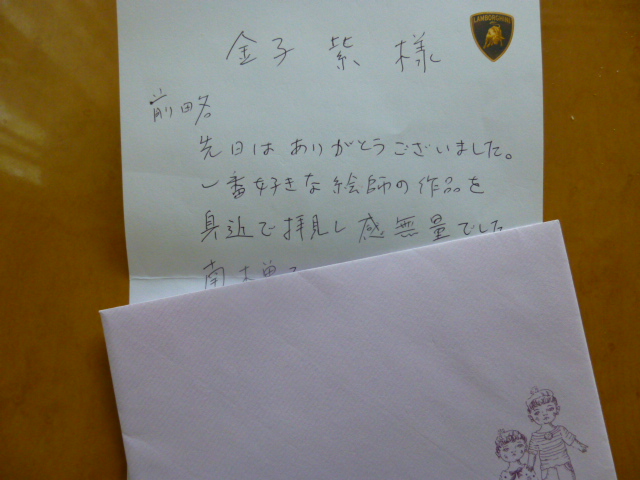 LAMBORGHINI
金子 紫 様
前略
先日は ありがとうございました。
一番好きな絵師の作品を
身近で拝見し感無量でした
南木曽